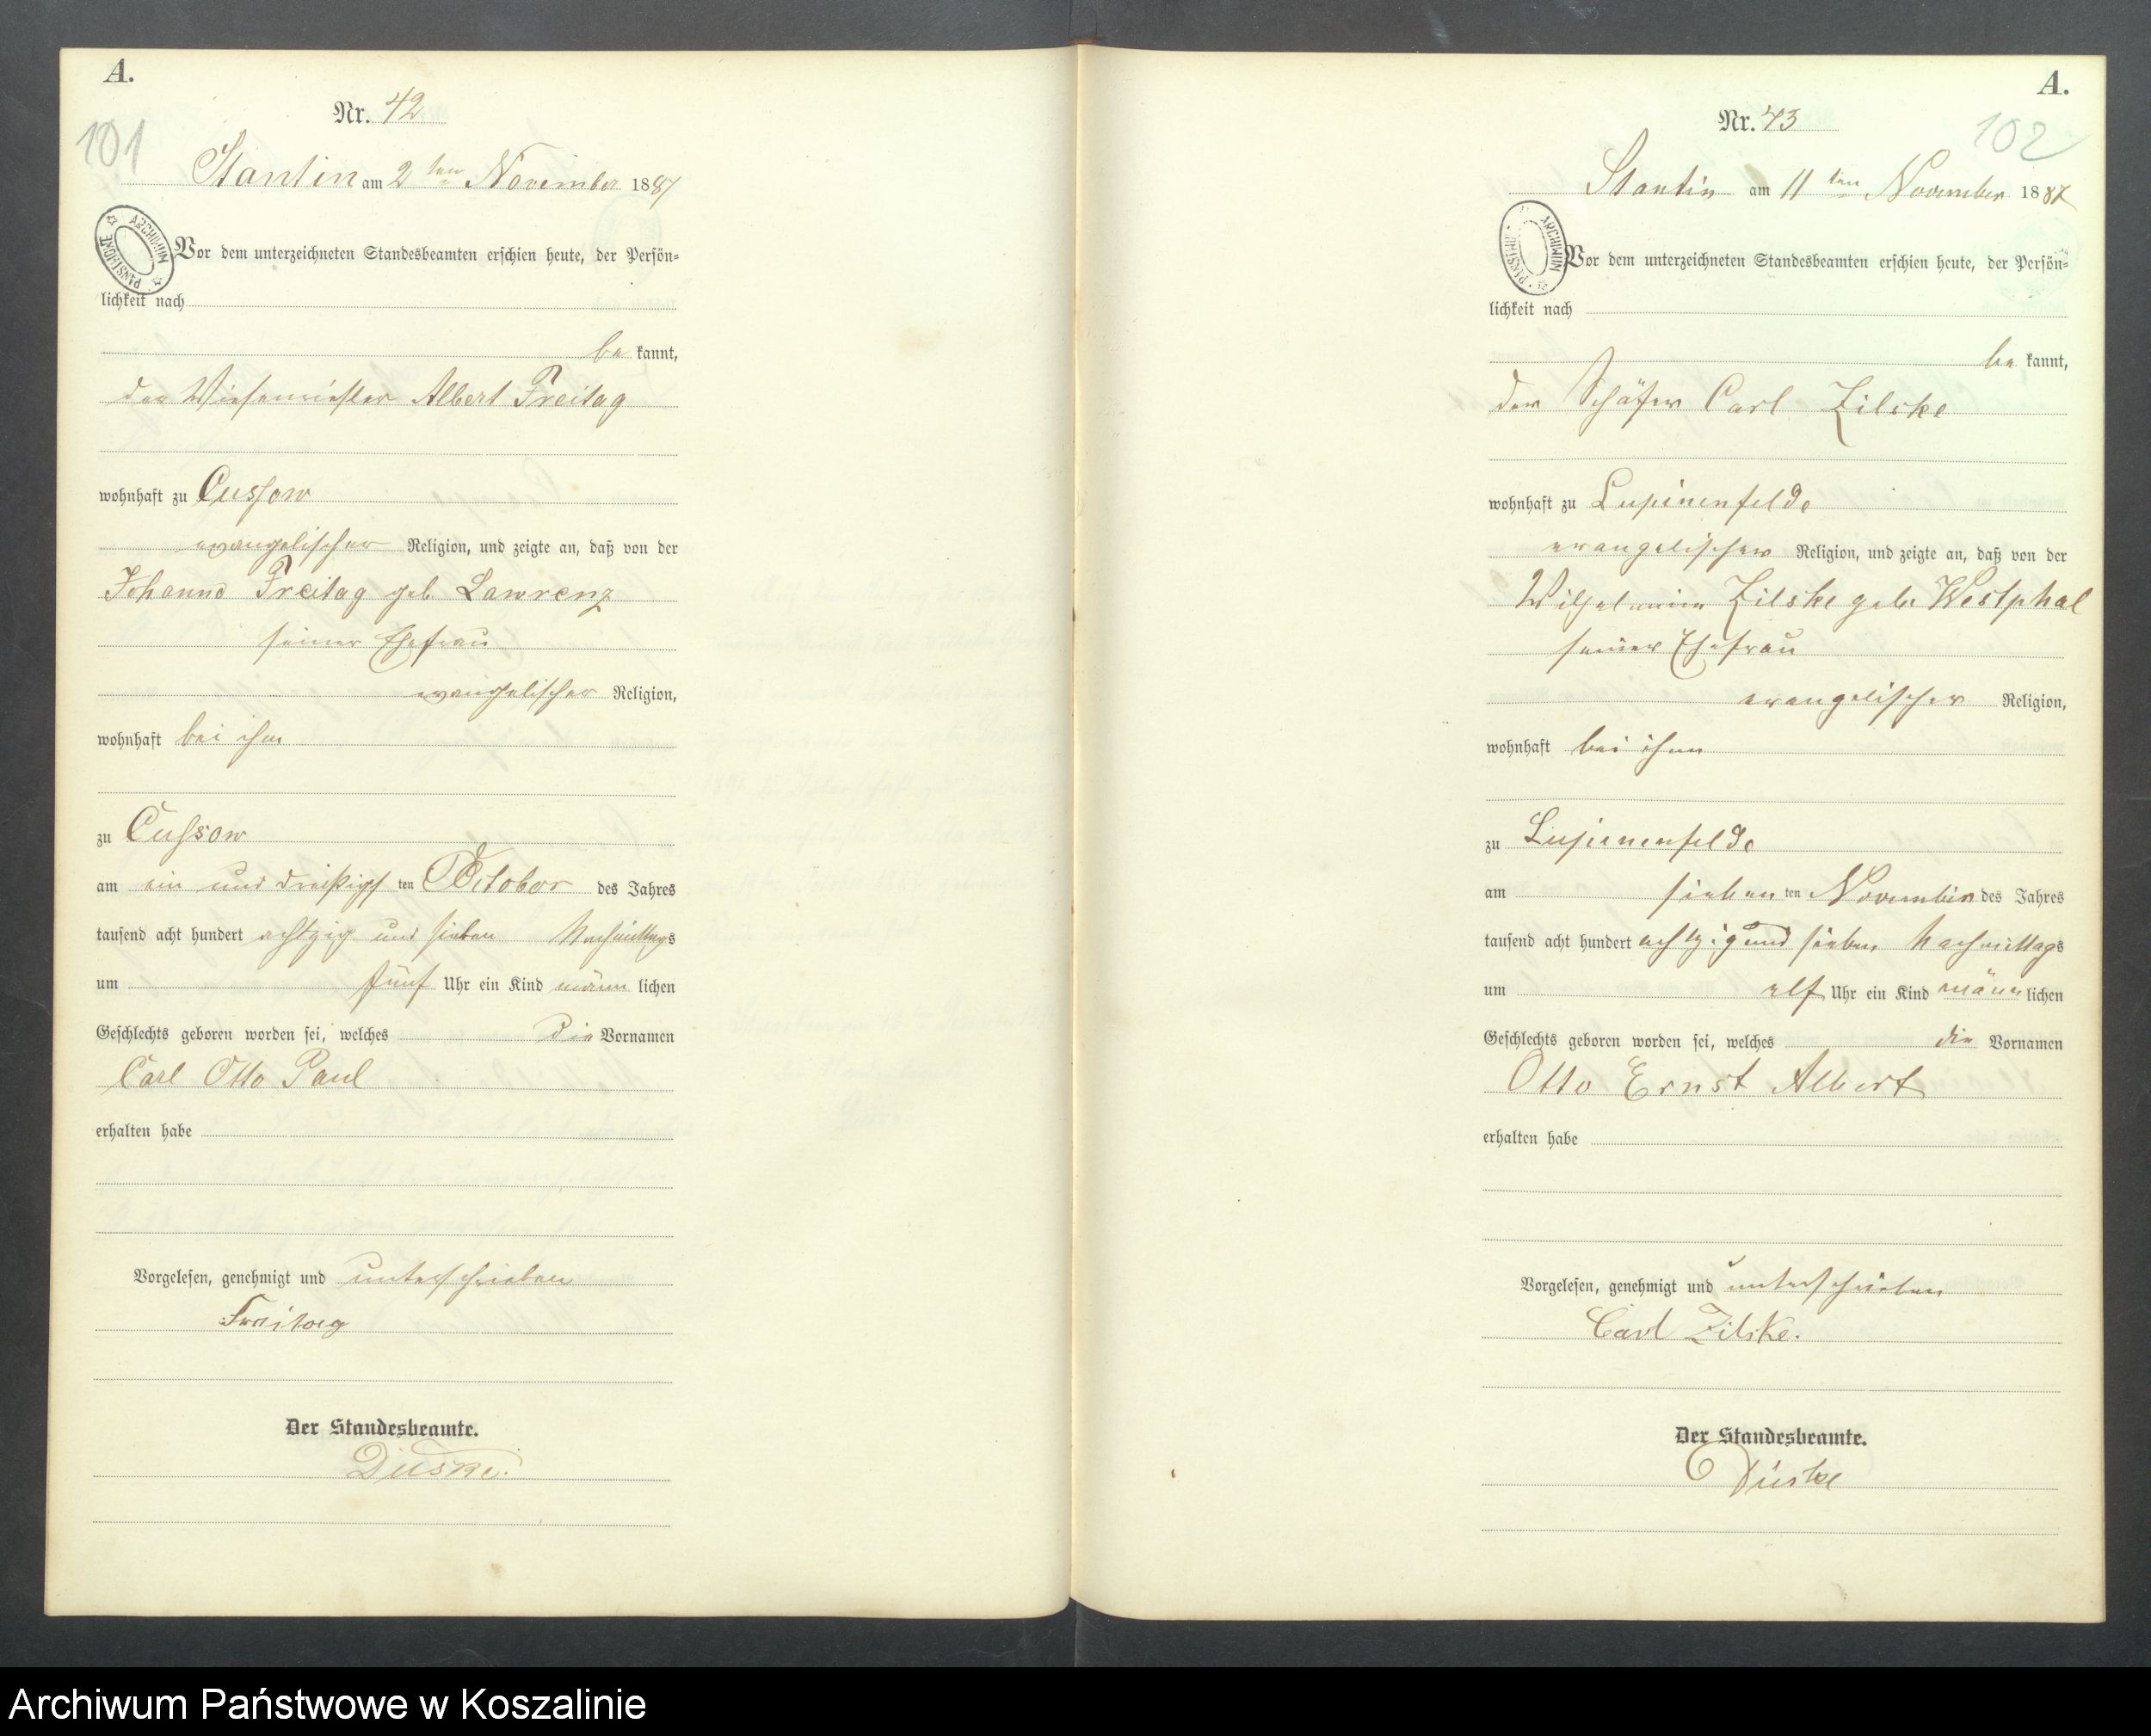 A.
Nr. 42
101
Stantin am 2ten November 1887
ARCHIWUM PAŃSTWOWE
Vor dem unterzeichneten Standesbeamten erschien heute, der Persön=
lichkeit nach
be kannt,
der Wiesenmeister Albert Freitag
wohnhaft zu Cussow
evangelischer Religion, und zeigte an, daß von der
Johanna Freitag geb. Lawrenz
seiner Ehefrau
evangelischer Religion,
wohnhaft bei ihm
zu Cussow
am ein und dreißigsten October des Jahres
tausend acht hundert achtzig und sieben Nachmittags
um fünf Uhr ein Kind männlichen
Geschlechts geboren worden sei, welches die Vornamen
Carl Otto Paul
erhalten habe
Vorgelesen, genehmigt und unterschrieben
Freitag
Der Standesbeamte.
Dieske.
A.
Nr. 43
102
Stantin am 11ten November 1887
ARCHIWUM PAŃSTWOWE
Vor dem unterzeichneten Standesbeamten erschien heute, der Persön=
lichkeit nach
be kannt,
der Schäfer Carl Zilske
wohnhaft zu Lupinenfelde
evangelischer Religion, und zeigte an, daß von der
Wilhelmine Zilske geb. Westphal
seiner Ehefrau
evangelischer Religion,
wohnhaft bei ihm
zu Lupinenfelde
am siebenten November des Jahres
tausend acht hundert achtzig und sieben Nachmittags
um elf Uhr ein Kind männlichen
Geschlechts geboren worden sei, welches die Vornamen
Otto Ernst Albert
erhalten habe
Vorgelesen, genehmigt und unterschrieben
Carl Zilske.
Der Standesbeamte.
Dieske
Archiwum Państwowe w Koszalinie